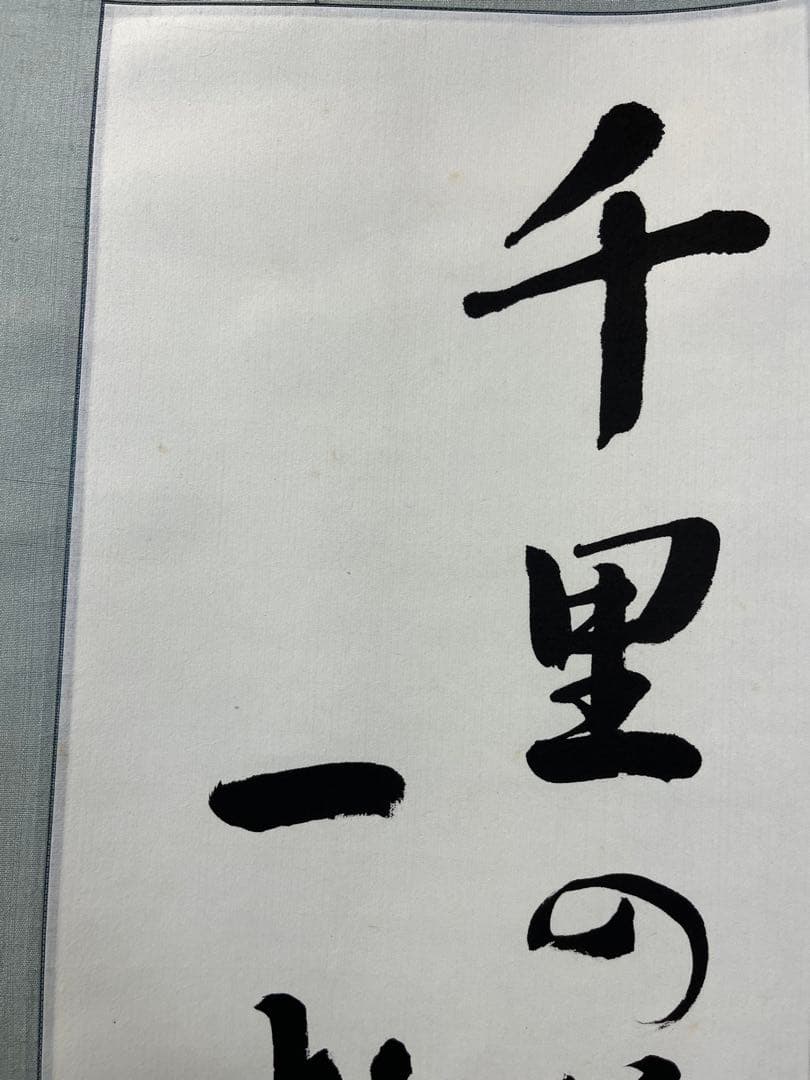 千里の
一